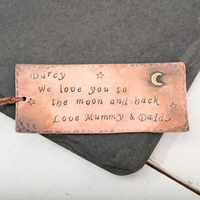 Darcy
We love you to
the moon and back
Love Mummy & Daddy